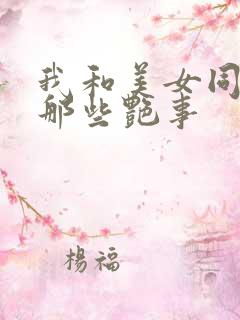 我和美女同
那些艷事
楊福